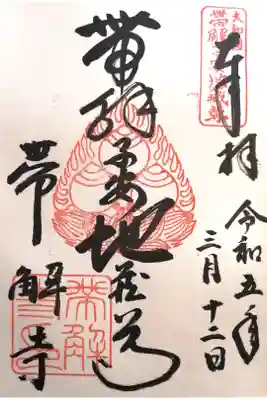 奉拝
令和五年
三月十二日
帯解子安地蔵尊
帯解寺